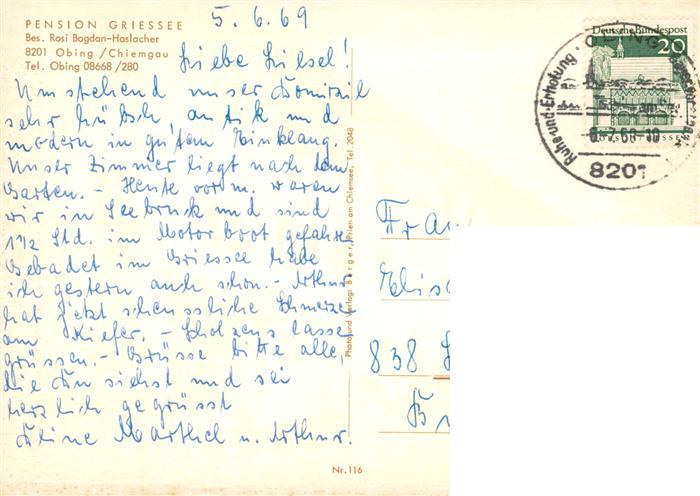 PENSION GRIESSEE
Bes. Rosi Bogdan-Haslacher
8201 Obing/Chiemgau
Tel. Obing 08668/280
5.6.69
Liebe Liesel!
Umstehend unser Domizil
sehr hübsch, antik und
modern in gutem Einklang.
Unser Zimmer liegt nach dem
Garten. - Heute vorm. waren
wir in Seebruck und sind
1½ Std. im Motorboot gefahren
Gebadet im Griessee habe
ich gestern auch schon. - Arthur
hat jetzt scheussliche Schmerzen
am Kiefer. - Scholzens lassen
grüssen. - Grüsse bitte alle,
die Du siehst und sei
herzlich gegrüsst
Deine Marthel u. Arthur.
Photo und Verlag: Berger, Prien am Chiemsee, Tel. 2048
Nr. 116
Deutsche Bundespost
20
OBING
Ruhe und Erholung
8201
Frau
838